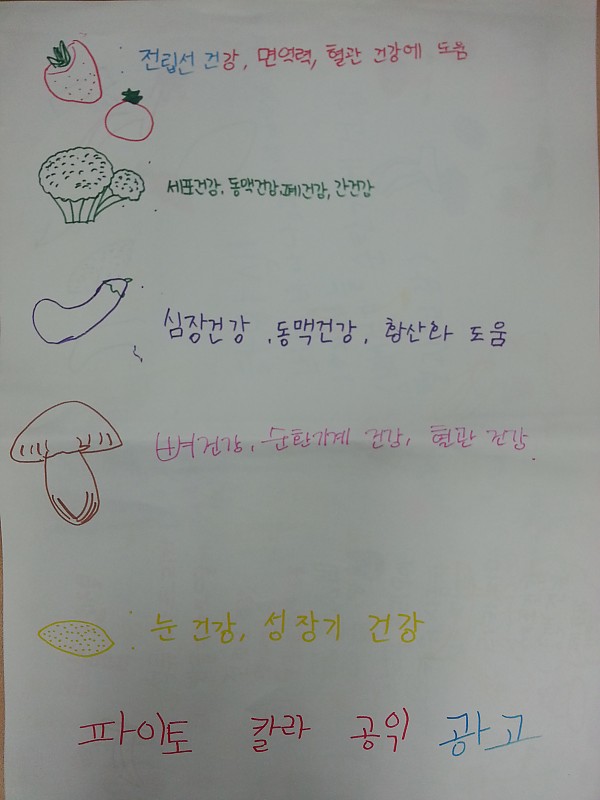 전립선 건강, 면역력, 혈관 건강에 도움
세포건강, 동맥건강, 폐건강, 간건강
심장건강, 동맥건강, 항산화 도움
뼈건강, 순환기계 건강, 혈관 건강
눈 건강, 성장기 건강
파이토 칼라 공익 광고